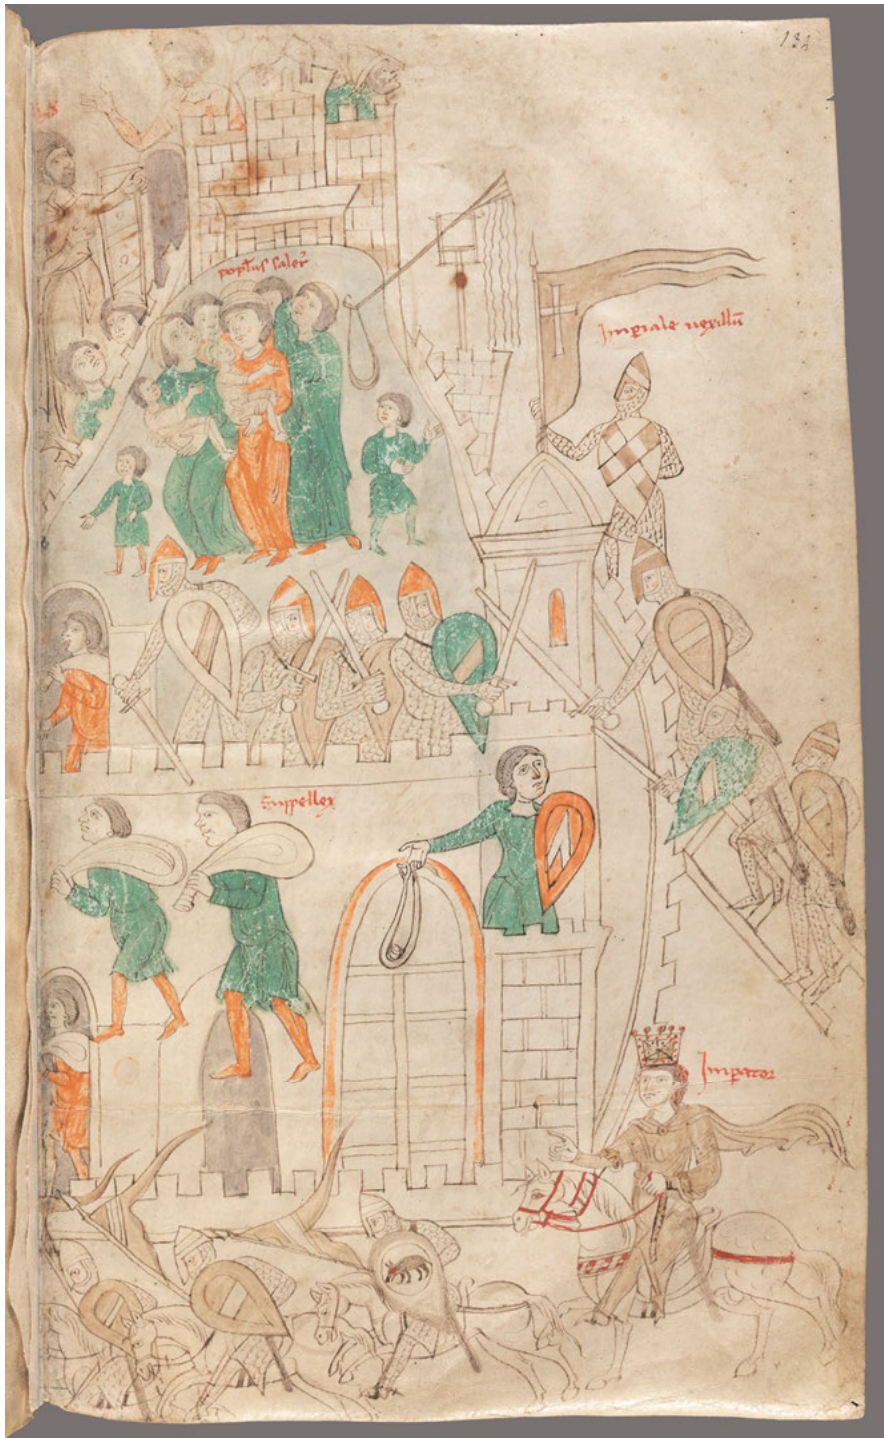 132
popl'us saler̄
Imꝑiale uexillū
Suppellex
Impator